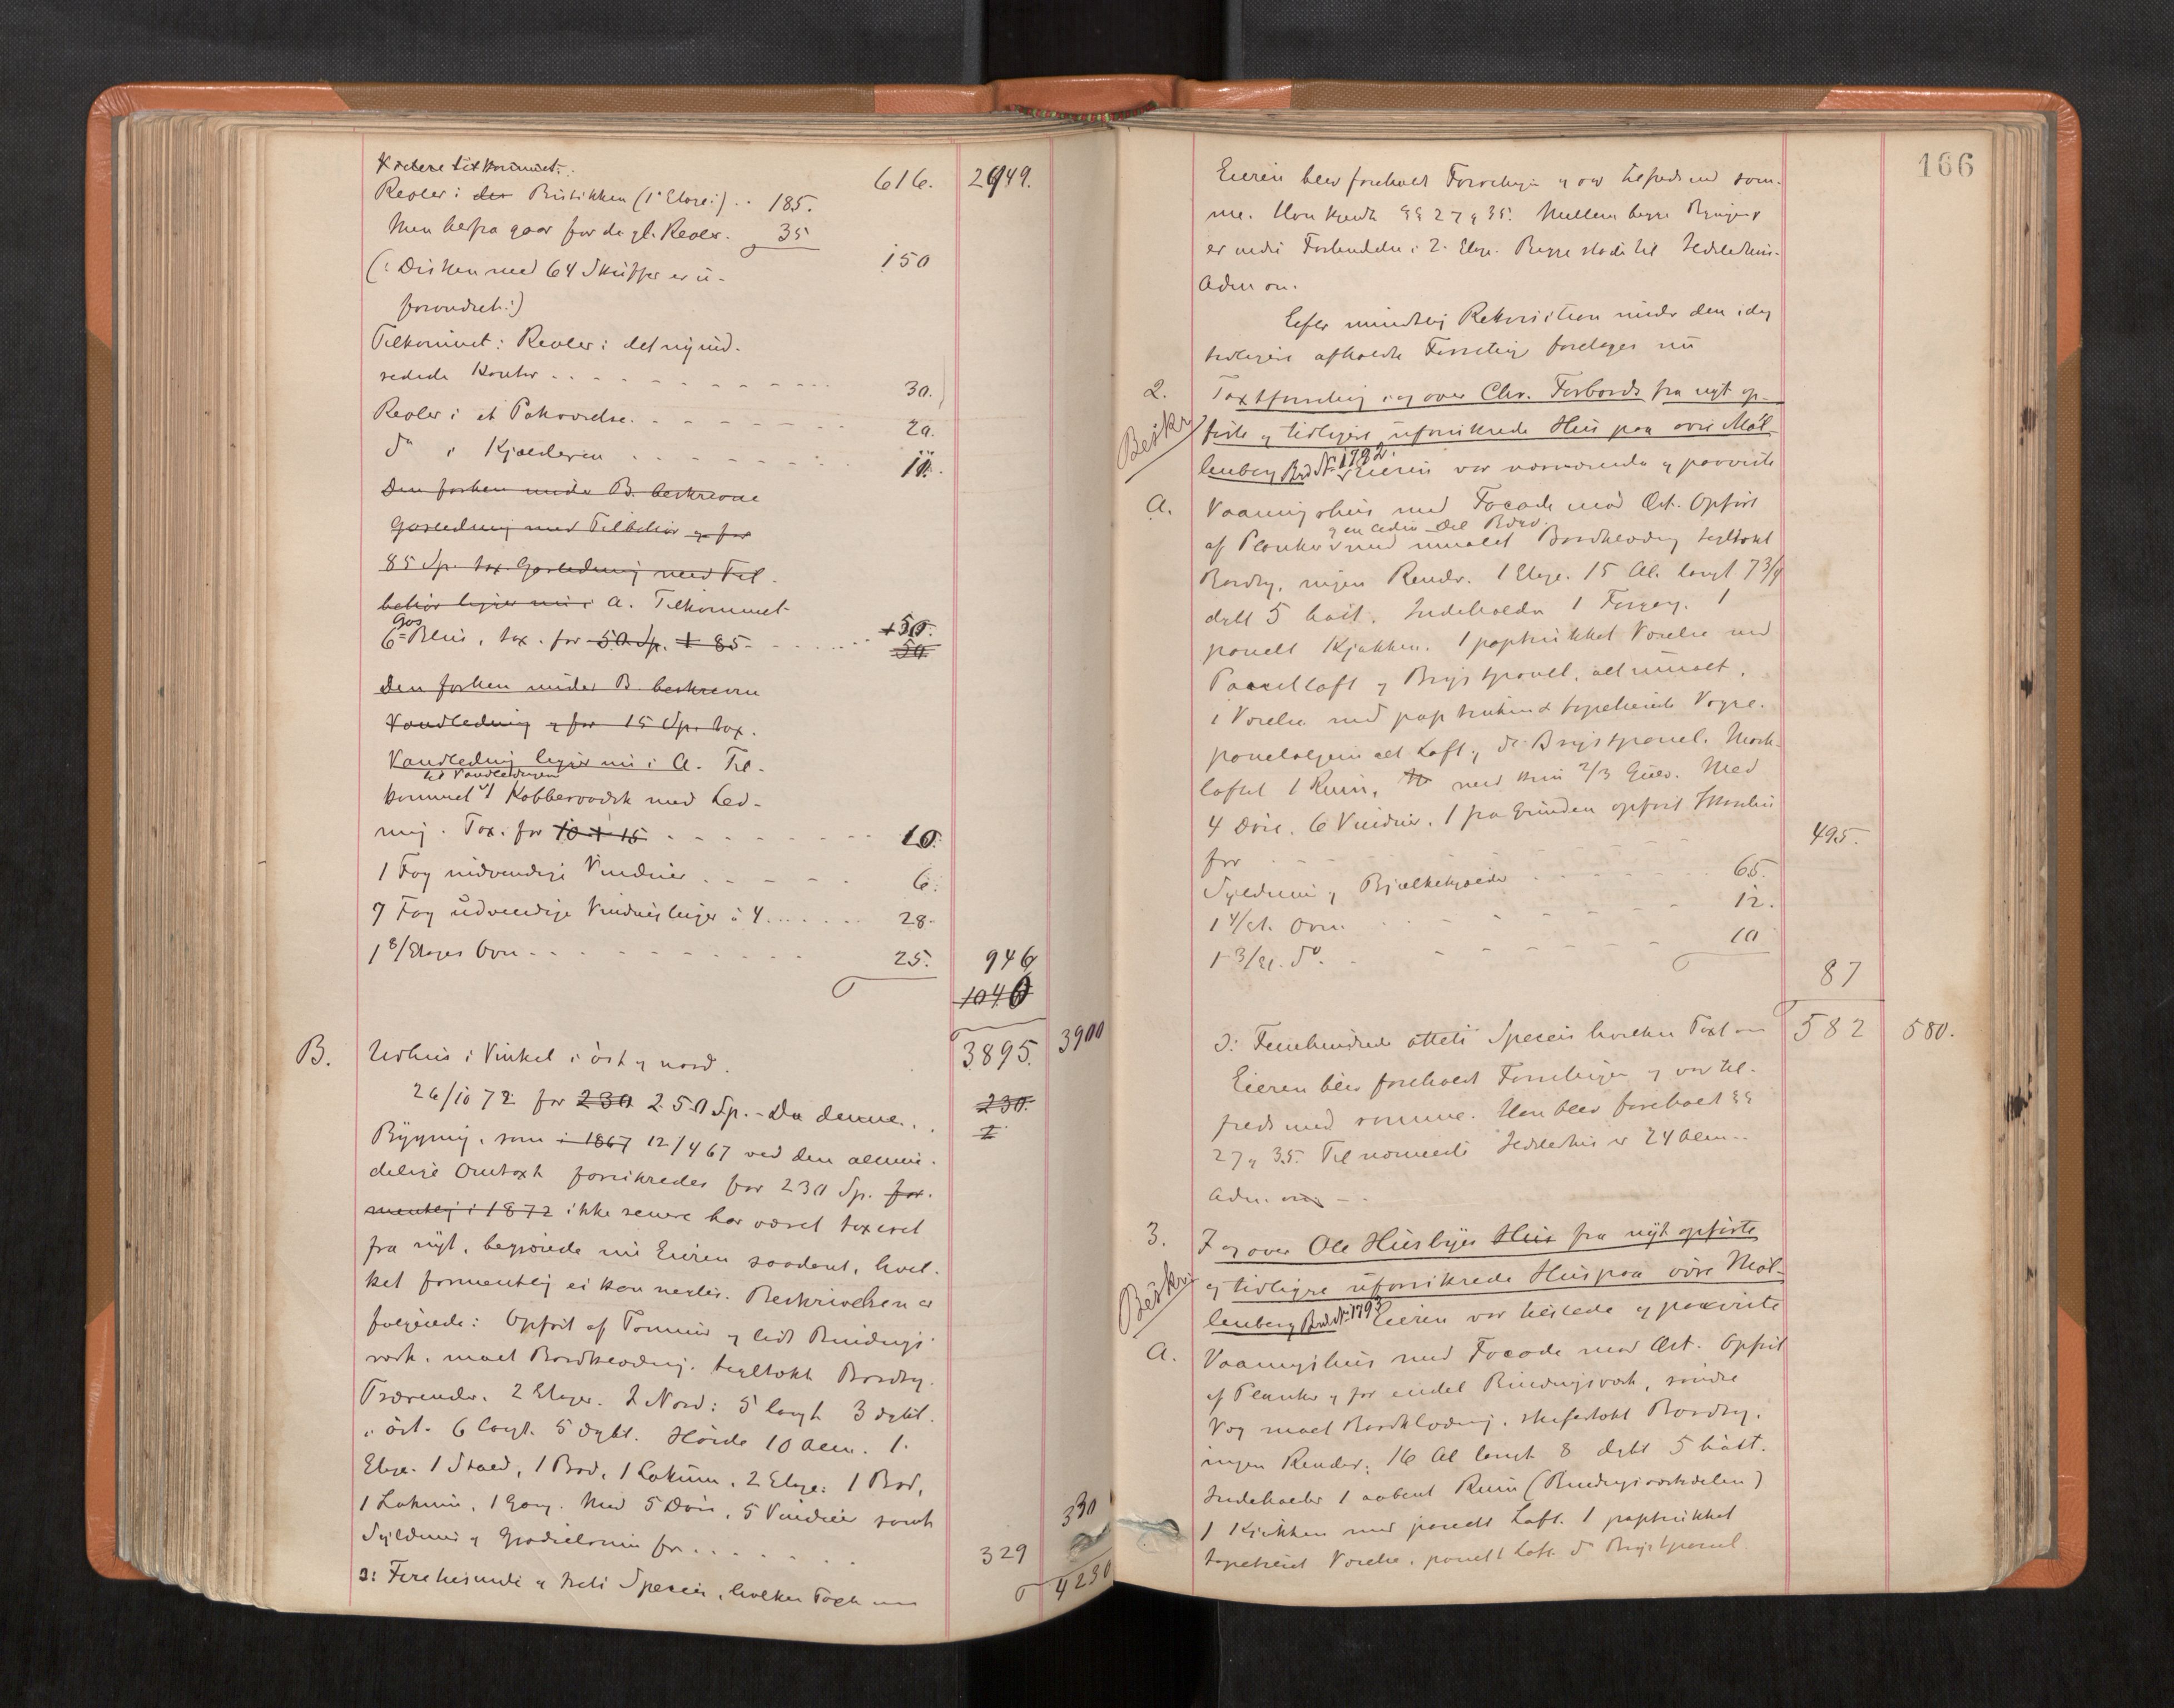 616. 2949.
Reoler i Butikken (1ste Etage:) . . 185.
Men herfra gaar for de gl. Reoler. 35
150
(: Disken med 64 Skuffer er u-
forandret:)
Tilkommet: Reoler i det nyind-
redede Kontor . . . . 30.
Reoler i et Pakværelse. . . . 20.
do i Kjælderen . . . . 11.
Den forhen under B. beskrevne
Gasledning med Tilbehör og for
85 Sp. tax. Gasledning med Til-
behör ligger nu i A. Tilkommet
6 Gas Blus, tax. for 50 Sp. + 85 . . . 50.
50
Den forhen under B. beskrevne
Vandledning og for 15 Sp. tax.
Vandledning ligger nu i A. Til-
til Vandledningen
kommet 1 Kobbervadsk med Led-
ning. Tax. for 10 + 15 . . . . 10.
1 Fag indvendige Vinduer . . . . 6.
7 Fag udvendige Vinduer à 4 . . . . 28.
1 8/Etages Ovn . . . . 25. 946
1040
3895. 3900
B. Udhus i Vinkel i öst og nord.
26/10 72 for 230 250 Sp. - Da denne . . 230.
Bygning, som i 1867 12/4 67 ved den almin-
delige Omtaxt forsikredes for 230 Sp. for-
mentlig i 1872 ikke senere har været taxeret
fra nyt, begjærede nu Eieren saadant, hvil-
ket formentlig ei kan negtes. Beskrivelsen er
fölgende: Opfört af Tömmer og lidt Bindings-
værk, malet Bordklædning, tegltækt Bordtag.
Trærender. 2 Etager. I Nord: 5 langt 3 dybt.
i öst. 6 langt. 5 dybt. Höide 10 Alen. 1.
Etage. 1 Stald, 1 Bod, 1 Lokum. 2 Etage: 1 Bod,
1 Lokum, 1 Gang. Med 5 Döre, 5 Vinduer samt
Syldmur og for . . . . 329 330
ɔ: Firetusinde og treti Species, hvilken Taxt 4230
166
Eieren blev foreholdt Forretningen og var tilfreds med sam-
me. Han kjendte §§ 27 og 35. Mellem begge Bygninger
er nedre Forbindelse i 2. Etage. Begge stöde til
Aden on.
Efter mundtlig Rekvisition under den idag
tidligere afholdte Forretning foretoges nu
2. Taxtforretning i og over Chr. Forbords fra nyt op-
Beskr. förte og tidligere uforsikrede Hus paa övre Möl-
lenberg Brd. No 1792. Eieren var nærværende og paaviste
A. Vaaningshus med Facade mod Öst. Opfört
og en liden Del Bdv.
af Planker med umalet Bordklædning tegltækt
Bordtag, ingen Render. 1 Etage. 15 Al. langt 7 3/4
dybt 5 höit. Indeholder 1 Forgang. 1
panelt Kjökken. 1 paptrukket Værelse med
Panelloft og Brystpanel, alt umalet,
1 Værelse med paptrukne tapetserede Vægge.
panelt Loft og do Brystpanel. Mörk-
loftet 1 Rum, med kun 2/3 Gulv. Med
4 Döre. 6 Vinduer. 1 fra Grunden opfört Skorsten
for . . . . 495.
Syldmur og Bjælkekjælder . . . . 65.
1 4/et. Ovn . . . . 12.
1 3/et. do. . . . . 10
87
ɔ: Femhundrede otteti Species hvilken Taxt 582 580.
Eieren blev foreholdt Forretningen og var til-
freds med samme. Han blev foreholdt §§
27 og 35. Til nærmeste er 24 Alen.
3. I og over Ole Husbyes Hus fra nyt opförte
Beskr. og tidligere uforsikrede Hus paa övre Möl-
lenberg Brd. No 1793. Eieren var tilstede og paaviste
A. Vaaningshus med Facade mod Öst. Opfört
af Planker og for endel Bindingsværk, söndre
Væg malet Bordklædning, skifertækt Bordtag,
ingen Render: 16 Al langt 8 dybt 5 höit.
Indeholder 1 aabent Rum (Bindingsværksdelen)
1 Kjökken med panelt Loft. 1 paptrukket
tapetseret Værelse, panelt Loft do Brystpanel